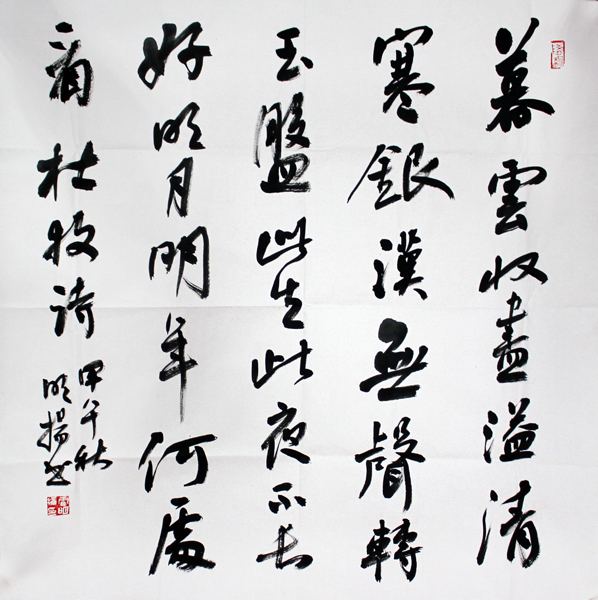 暮雲收盡溢清
寒銀漢無聲轉
玉盤此生此夜不長
好明月明年何處
看杜牧诗
甲午秋
明揚书